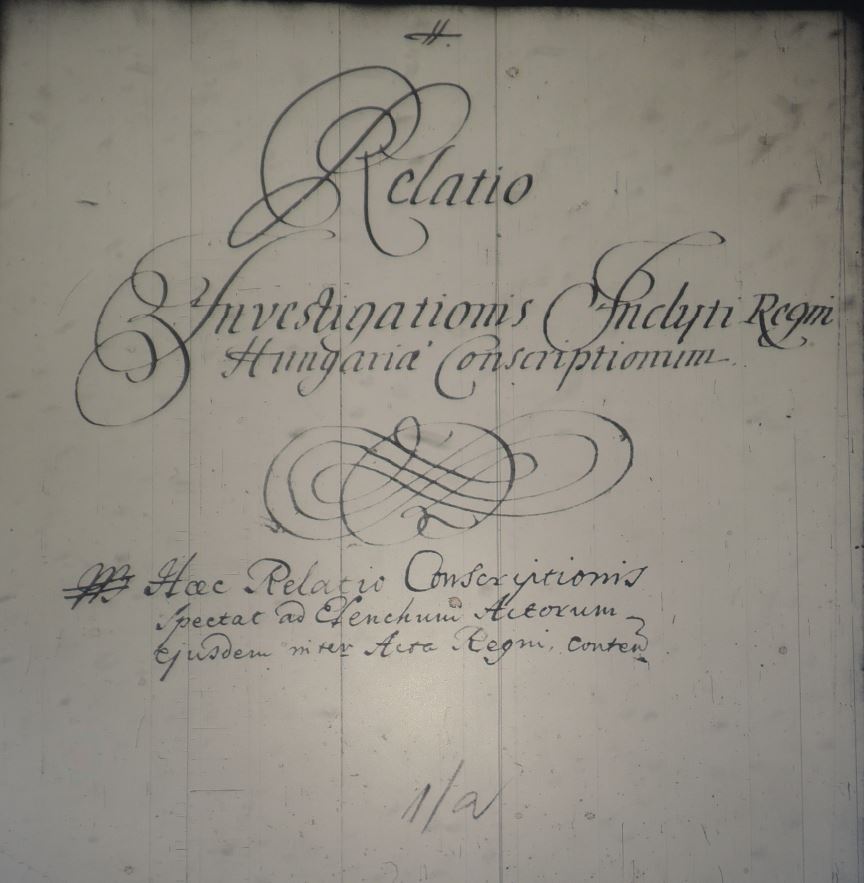 H.
Relatio
Investigationis Inclyti Regni
Hungariæ Conscriptionum.
Hæc Relatio Conscriptionis
spectat ad Elenchum Actorum
Ejusdem inter Acta Regni, conten
1/a